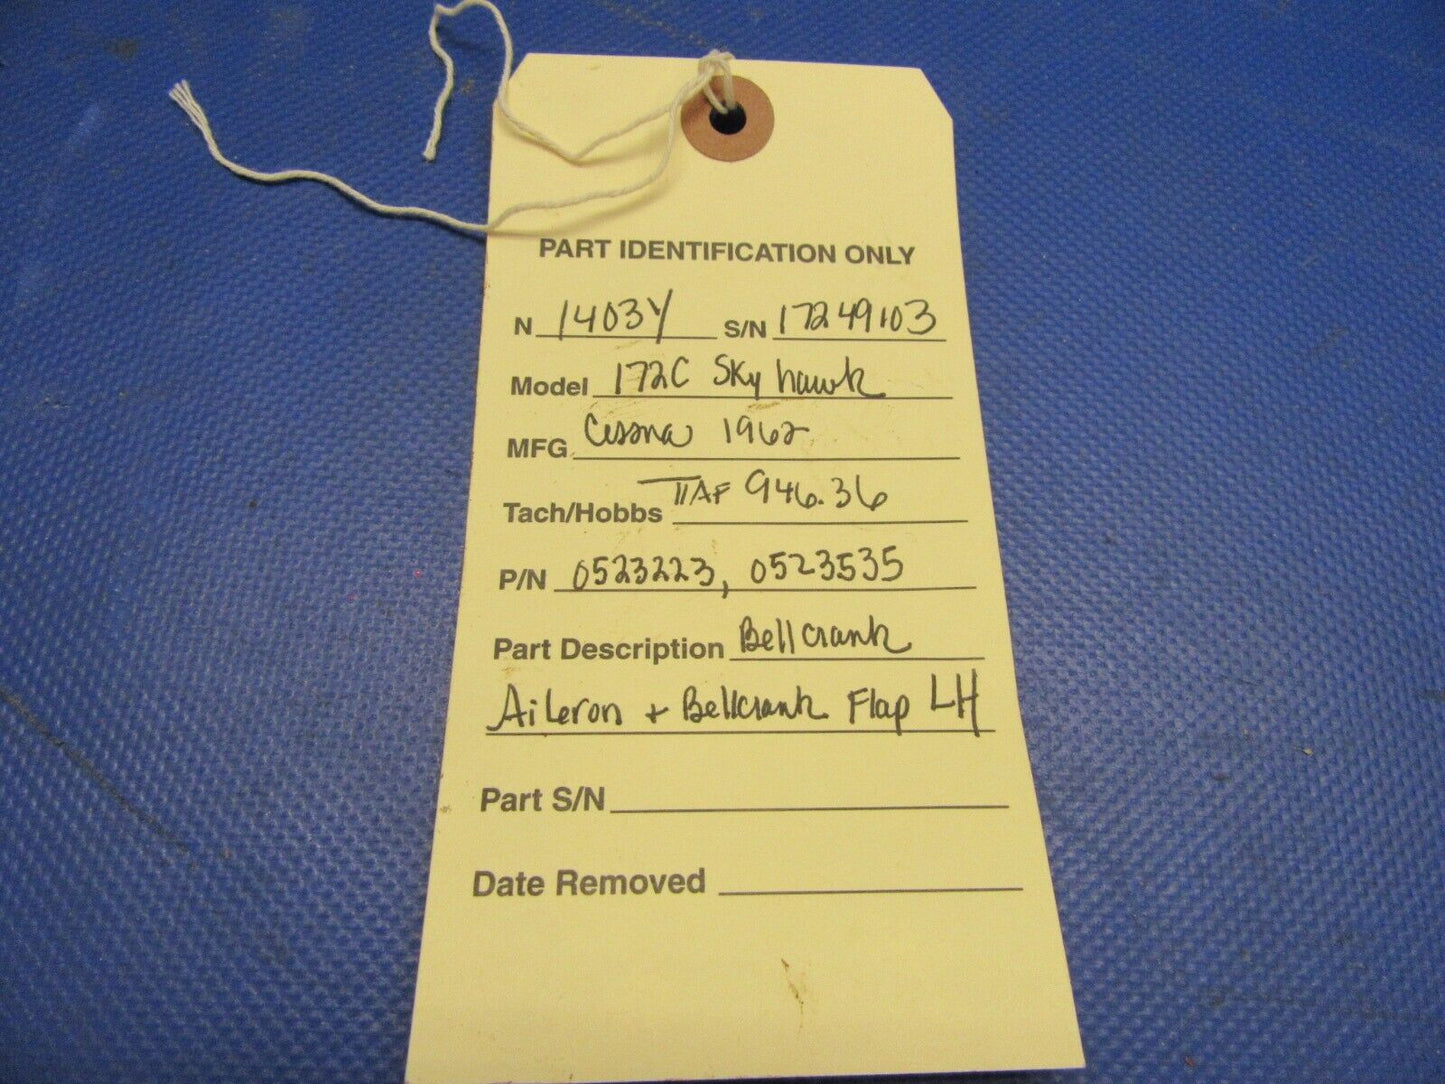 PART IDENTIFICATION ONLY
N 1403Y S/N 17249103
Model 172C Skyhawk
MFG Cessna 1962
Tach/Hobbs TTAF 946.36
P/N 0523223, 0523535
Part Description Bellcrank
Aileron + Bellcrank Flap LH
Part S/N
Date Removed